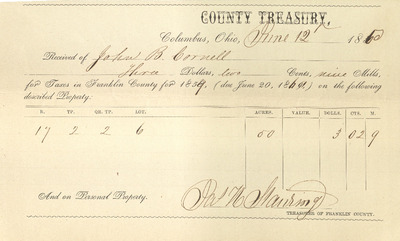 COUNTY TREASURY,
Columbus, Ohio, June 12th 1860
Received of John B. Cornell
Three Dollars, two Cents, nine Mills,
for Taxes in Franklin County for 1859, (due June 20, 1860,) on the following
described Property:
R. TP. QR. TP. LOT. ACRES. VALUE. DOLLS. CTS. M.
17 2 2 6 50 3 02 9
And on Personal Property.
TREASURER OF FRANKLIN COUNTY.